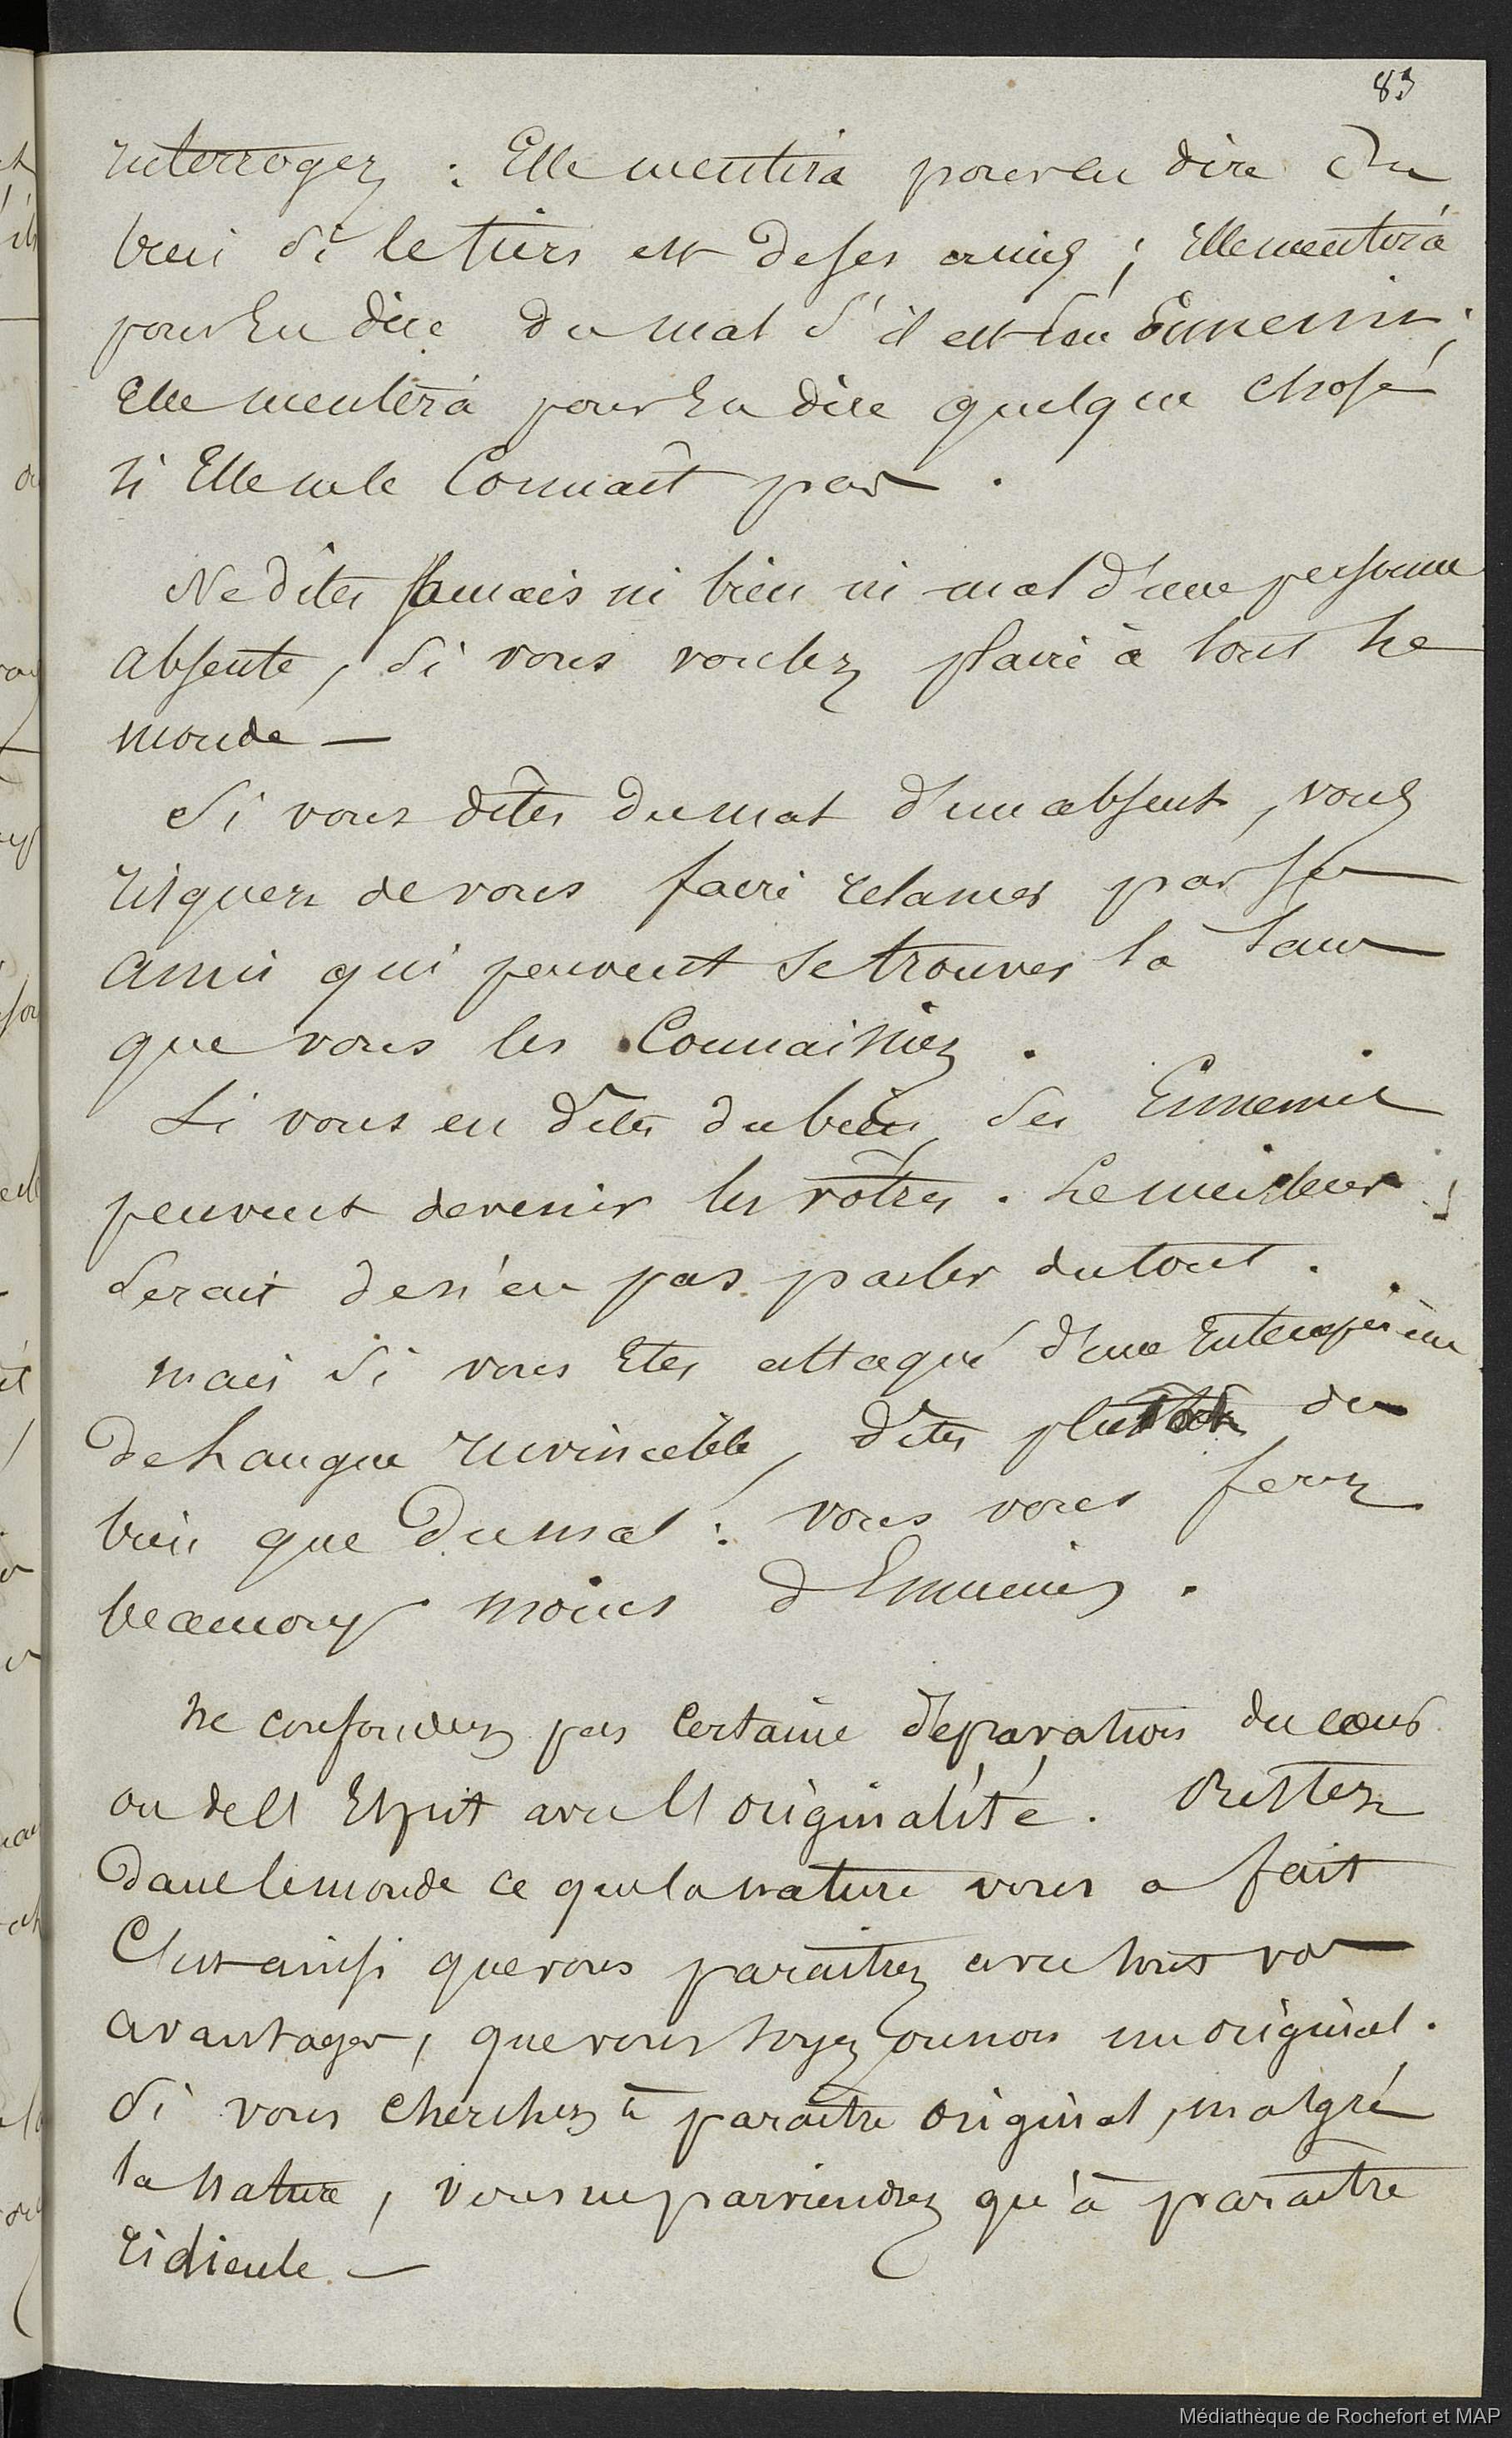 83
interrogez : Elle mentira pour en dire du
bien si le tiers est de ses amis ; Elle mentira
pour En dire du mal s'il est son Ennemi ;
Elle mentira pour En dire quelque chose
si Elle ne le Connaît pas .
Ne dîtes jamais ni bien ni mal d'une personne
absente, si vous voulez plaire à tout le
monde —
Si vous dîtes du mal d'un absent, vous
risquez de vous faire réclamer par ses
amis qui peuvent se trouver là sans
que vous les Connaissiez .
Si vous en dîtes du bien, ses Ennemis
peuvent devenir les vôtres . Le meilleur
serait de n'en pas parler du tout .
mais si vous Etes attaqué d'une Intempérance
de Langue invincible, dîtes plutôt du
bien que du mal : vous vous ferez
beaucoup moins d'Ennemis .
Ne confondez pas certaine dépravation du cœur
ou de l'Esprit avec l'originalité . Restez
dans le monde ce que la nature vous a fait
C'est ainsi que vous paraîtrez avec tous vos
avantages, que vous soyez ou non un original .
Si vous cherchez à paraître original, malgré
la Nature, vous ne parviendrez qu'à paraître
ridicule —
Médiathèque de Rochefort et MAP